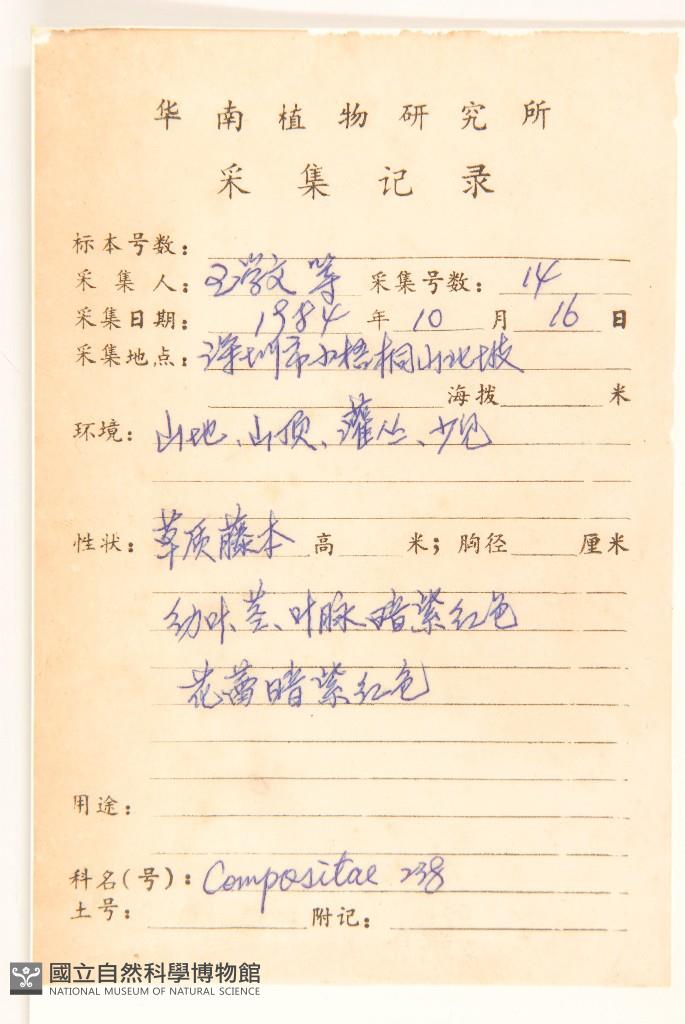 华南植物研究所
采集记录
标本号数:
采集人: 王学文等 采集号数: 14
采集日期: 1984年10月16日
采集地点: 深圳市小梧桐山北坡
海拨 米
环境: 山地、山顶、灌丛、少见
性状: 草质藤本 高 米; 胸径 厘米
幼叶、茎、叶脉暗紫红色
花蕾暗紫红色
用途:
科名(号): Compositae 238
土号: 附记:
國立自然科學博物館
NATIONAL MUSEUM OF NATURAL SCIENCE